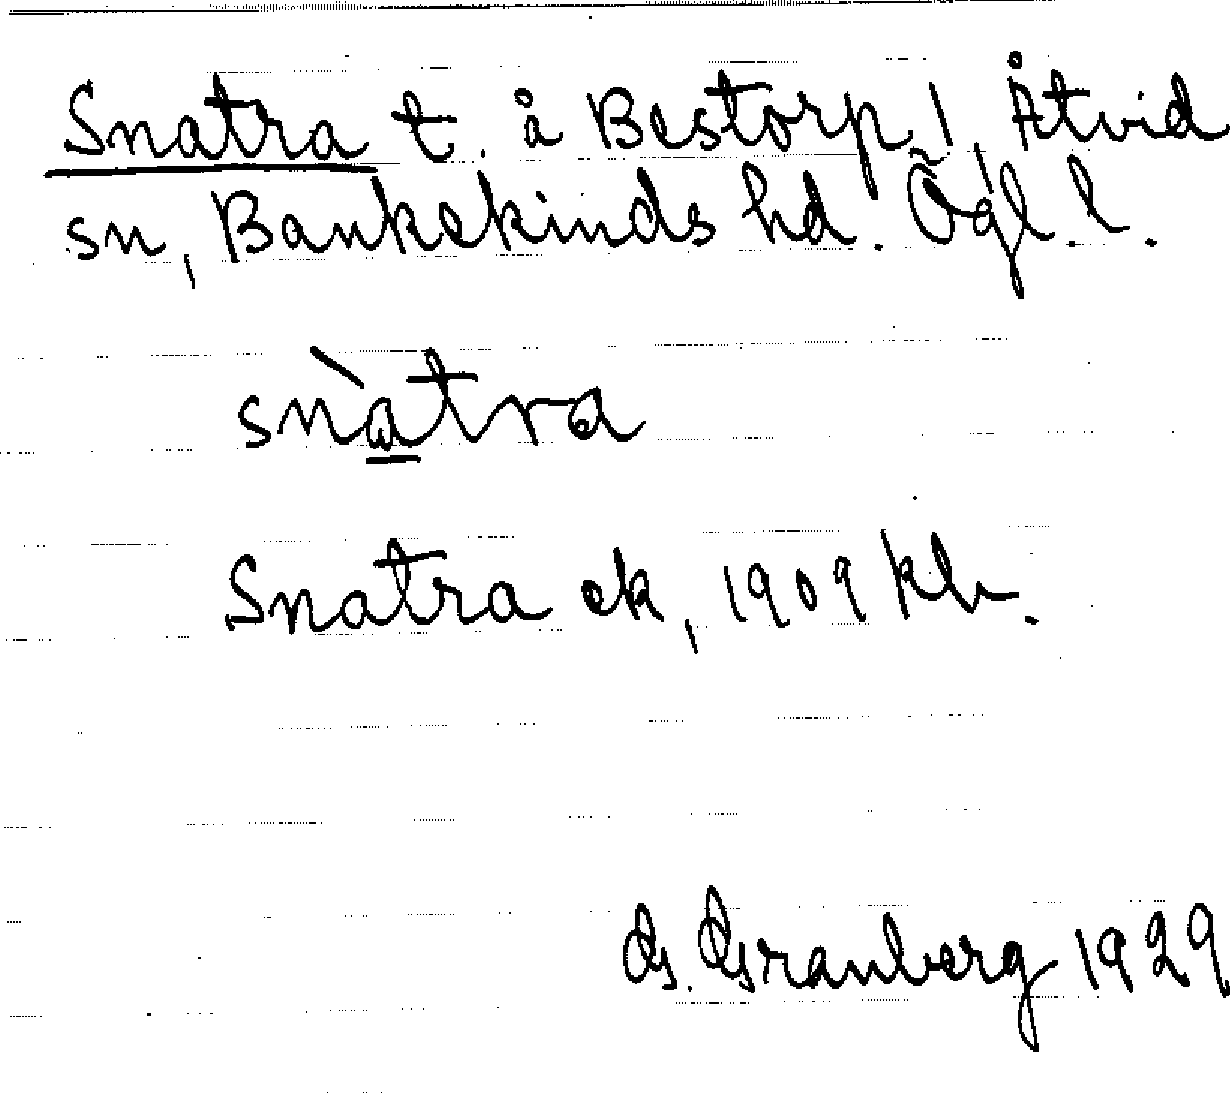 Snatra t. å Bestorp, 1, Åtvid
sn, Bankekinds hd. Ögl. l.
snàtra
Snatra ek, 1909 kb.
G. Granberg 1929